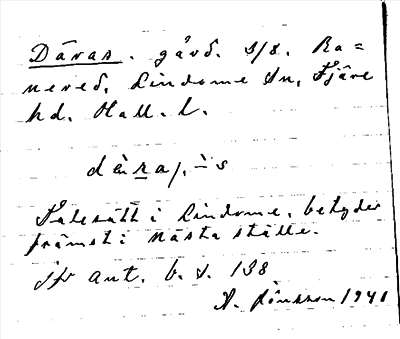 Däras. gård. s/s. Ra=
nered, Lindome sn, Fjäre
hd. Hall. l.
däraı, -̀ s
Talesätt i Lindome, betyder
främst i nästa ställe.
jfr ant. b. s. 138
A. Jönsson 1941